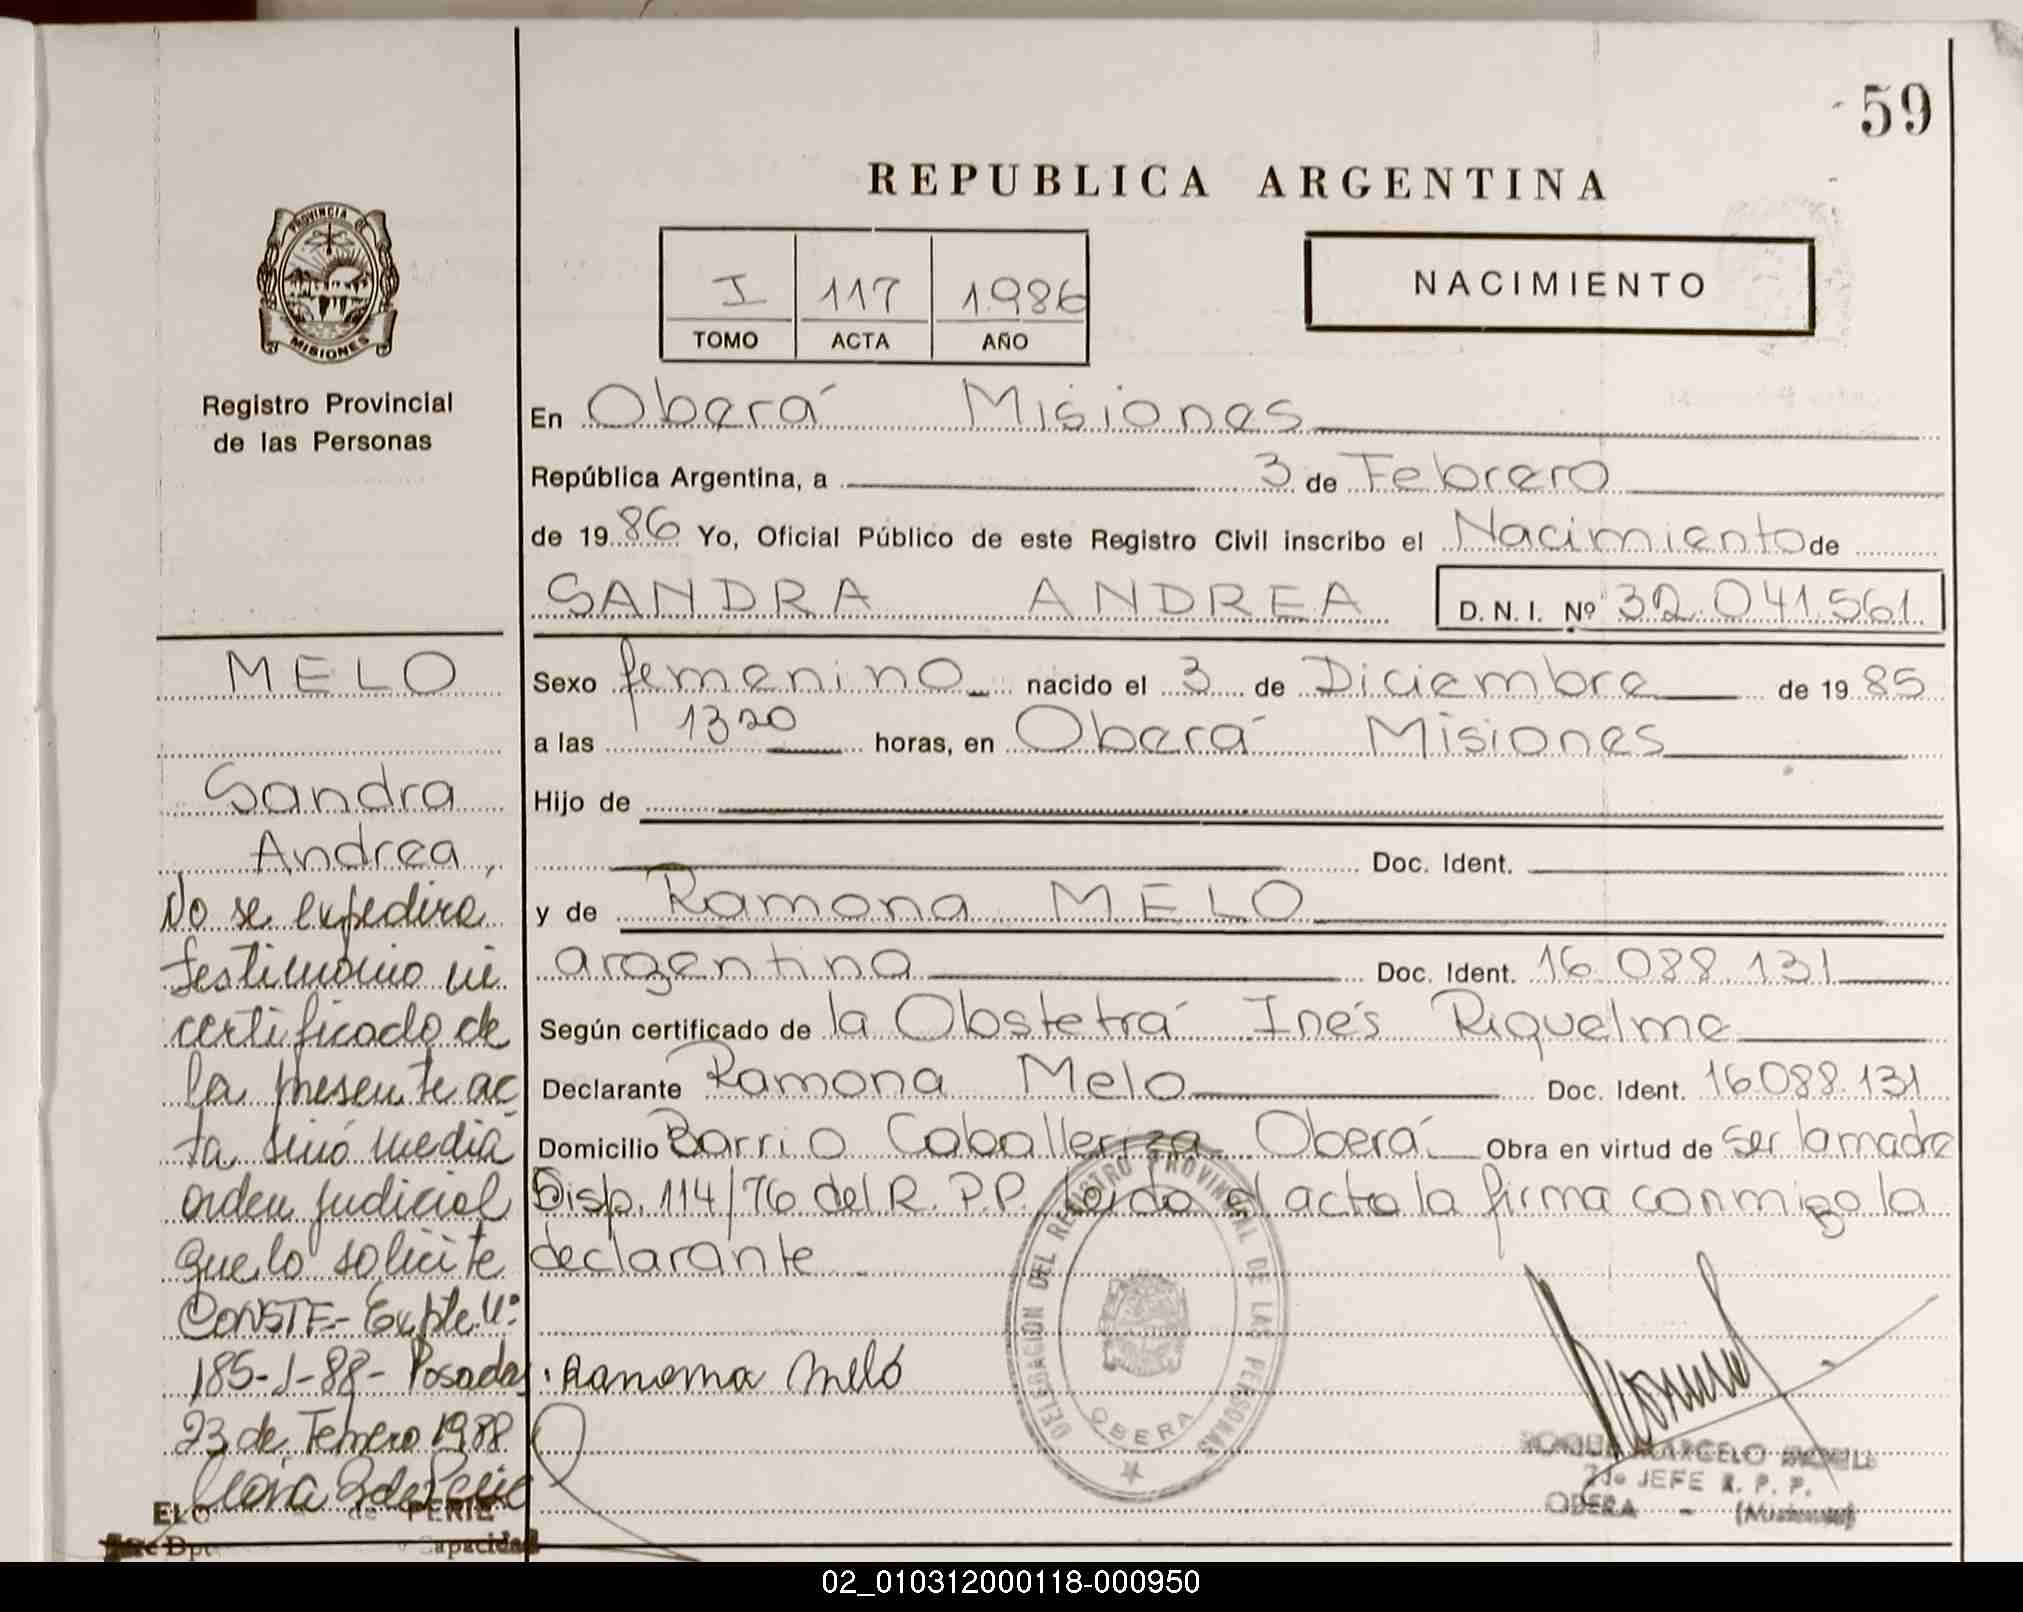 59
REPUBLICA ARGENTINA
PROVINCIA DE
MISIONES
Registro Provincial
de las Personas
I 117 1986
TOMO ACTA AÑO
NACIMIENTO
En Oberá Misiones
República Argentina, a 3 de Febrero
de 1986 Yo, Oficial Público de este Registro Civil inscribo el Nacimiento de
SANDRA ANDREA D. N. I. Nº 32.041.561
Sexo femenino nacido el 3 de Diciembre de 1985
a las 1320 horas, en Oberá Misiones
Hijo de
Doc. Ident.
y de Ramona MELO
argentina Doc. Ident. 16.088.131
Según certificado de la Obstetrá Inés Riquelme
Declarante Ramona Melo Doc. Ident. 16088.131
Domicilio Barrio Caballeriza Oberá Obra en virtud de ser la madre
Disp. 114/76 del R.P.P. leído el acta la firma conmigo la
declarante
Ramona Meló
DELEGACION DEL REGISTRO PROVINCIAL DE LAS PERSONAS
OBERA
MARCELO
2do JEFE R. P. P.
OBERA - (Misiones)
MELO
Sandra
Andrea,
No se expedira
testimonio ni
certificado de
la presente ac-
ta sinó media
orden judicial
que lo solicite
CONSTE- Expte Nº
185-J-88- Posadas
23 de Febrero 1988
ELO de PERIE
02_010312000118-000950